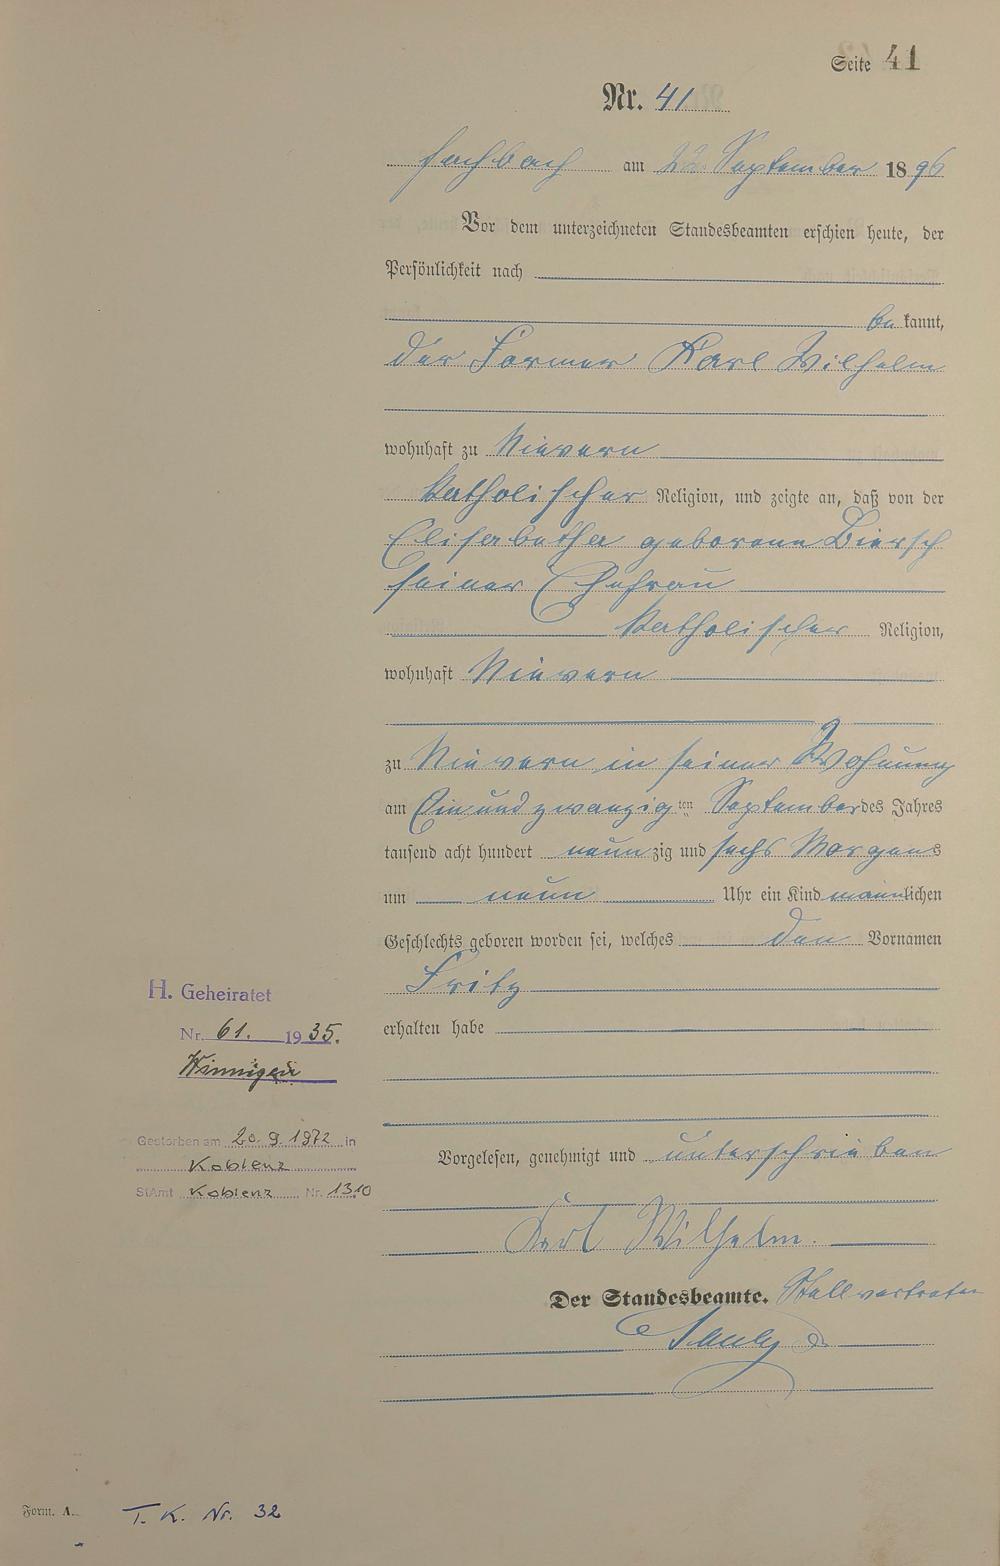 Seite 41
Nr. 41
Fachbach am 22 September 1896
Vor dem unterzeichneten Standesbeamten erschien heute, der
Persönlichkeit nach
be kannt,
der Former Karl Wilhelm
wohnhaft zu Nievern
katholischer Religion, und zeigte an, daß von der
Elisabetha geborene Biersch
seiner Ehefrau
katholischer Religion,
wohnhaft Nievern
zu Nievern in seiner Wohnung
am Ein und zwanzig ten September des Jahres
tausend acht hundert neun zig und sechs Morgens
um neun Uhr ein Kind männlichen
Geschlechts geboren worden sei, welches den Vornamen
Fritz
erhalten habe
H. Geheiratet
Nr. 61. 1935.
Winnigen
Gestorben am 20.9.1972 in
Koblenz
StAmt Koblenz Nr. 1310
Vorgelesen, genehmigt und unterschrieben
Karl Wilhelm.
Der Standesbeamte. Stellvertreter
Form. A.
T. K. Nr. 32